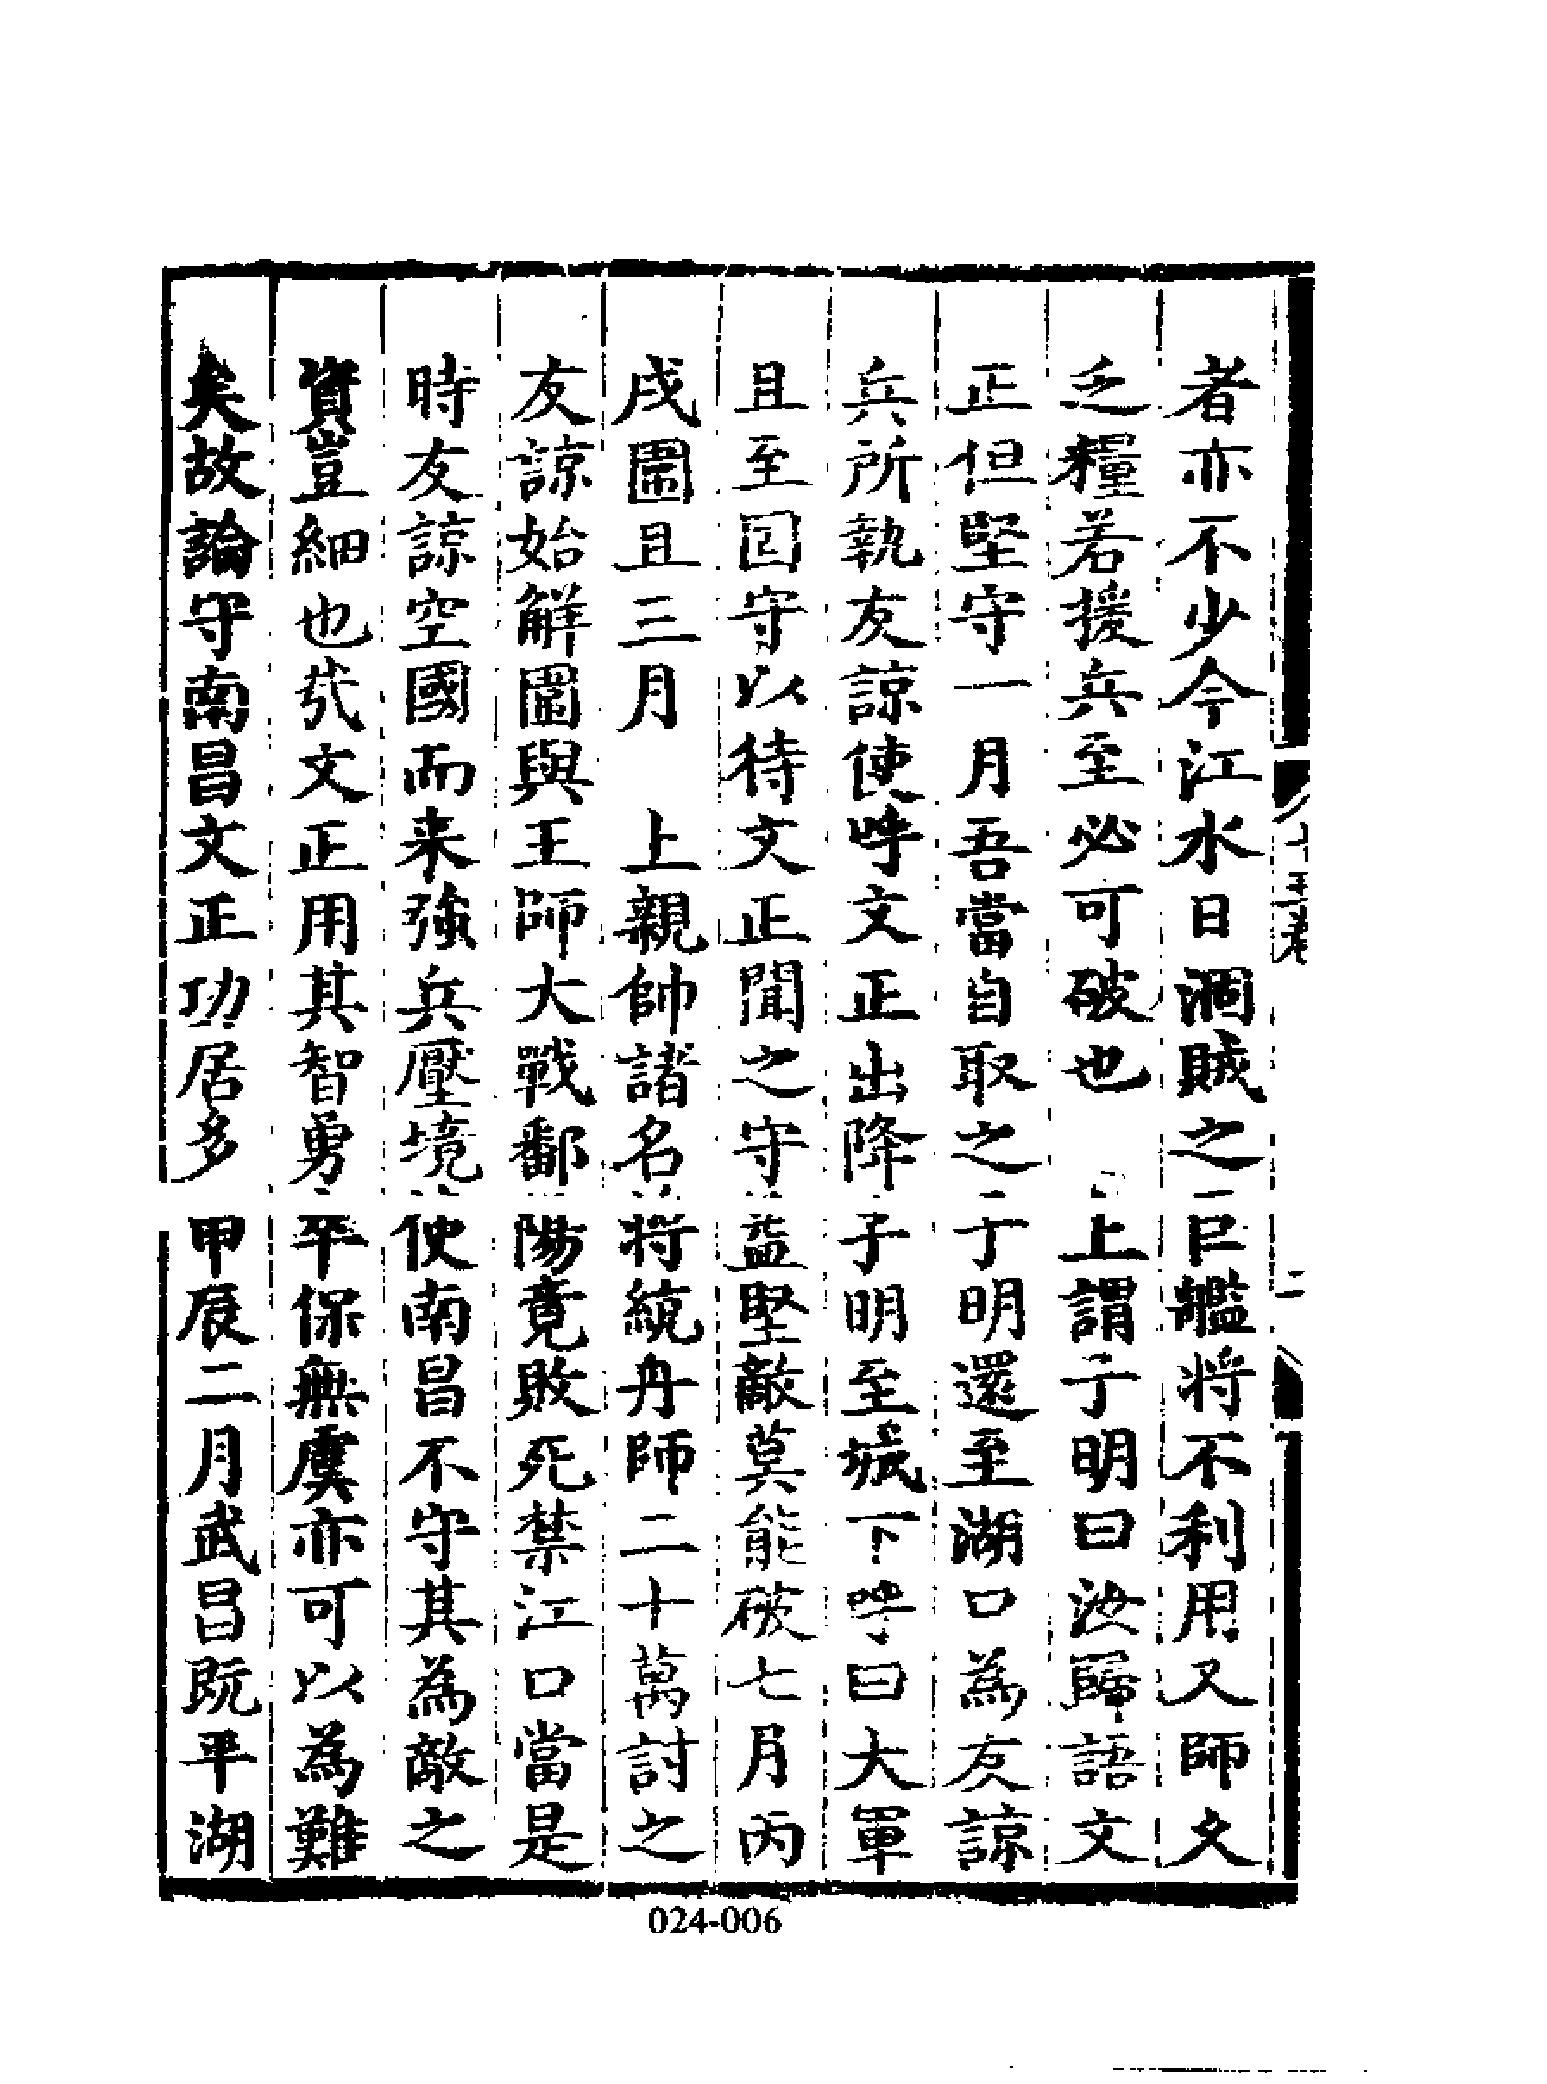 者亦不少今江水日涸賊之巨艦将不利用又師久
乏糧若援兵至必可破也　上謂子明曰汝歸語文
正但堅守一月吾當自取之子明還至湖口為友諒
兵所執友諒使呼文正出降子明至城下呼曰大軍
且至固守以待文正聞之守益堅敵莫能破七月丙
戌圍且三月　上親帥諸名将統舟師二十萬討之
友諒始解圍與王師大戰鄱陽竟敗死禁江口當是
時友諒空國而来強兵壓境使南昌不守其為敵之
資豈細也㢤文正用其智勇平保無虞亦可以為難
矣故論守南昌文正功居多甲辰二月武昌既平湖
二
024-006